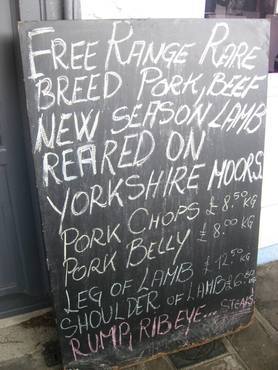 FREE RANGE RARE
BREED PORK, BEEF
NEW SEASON LAMB
REARED ON
YORKSHIRE MOORS.
PORK CHOPS £8.50 KG
PORK BELLY £8.00 KG
LEG OF LAMB £12.50 KG
SHOULDER OF LAMB £6.50 KG
RUMP, RIBEYE... STEAKS.